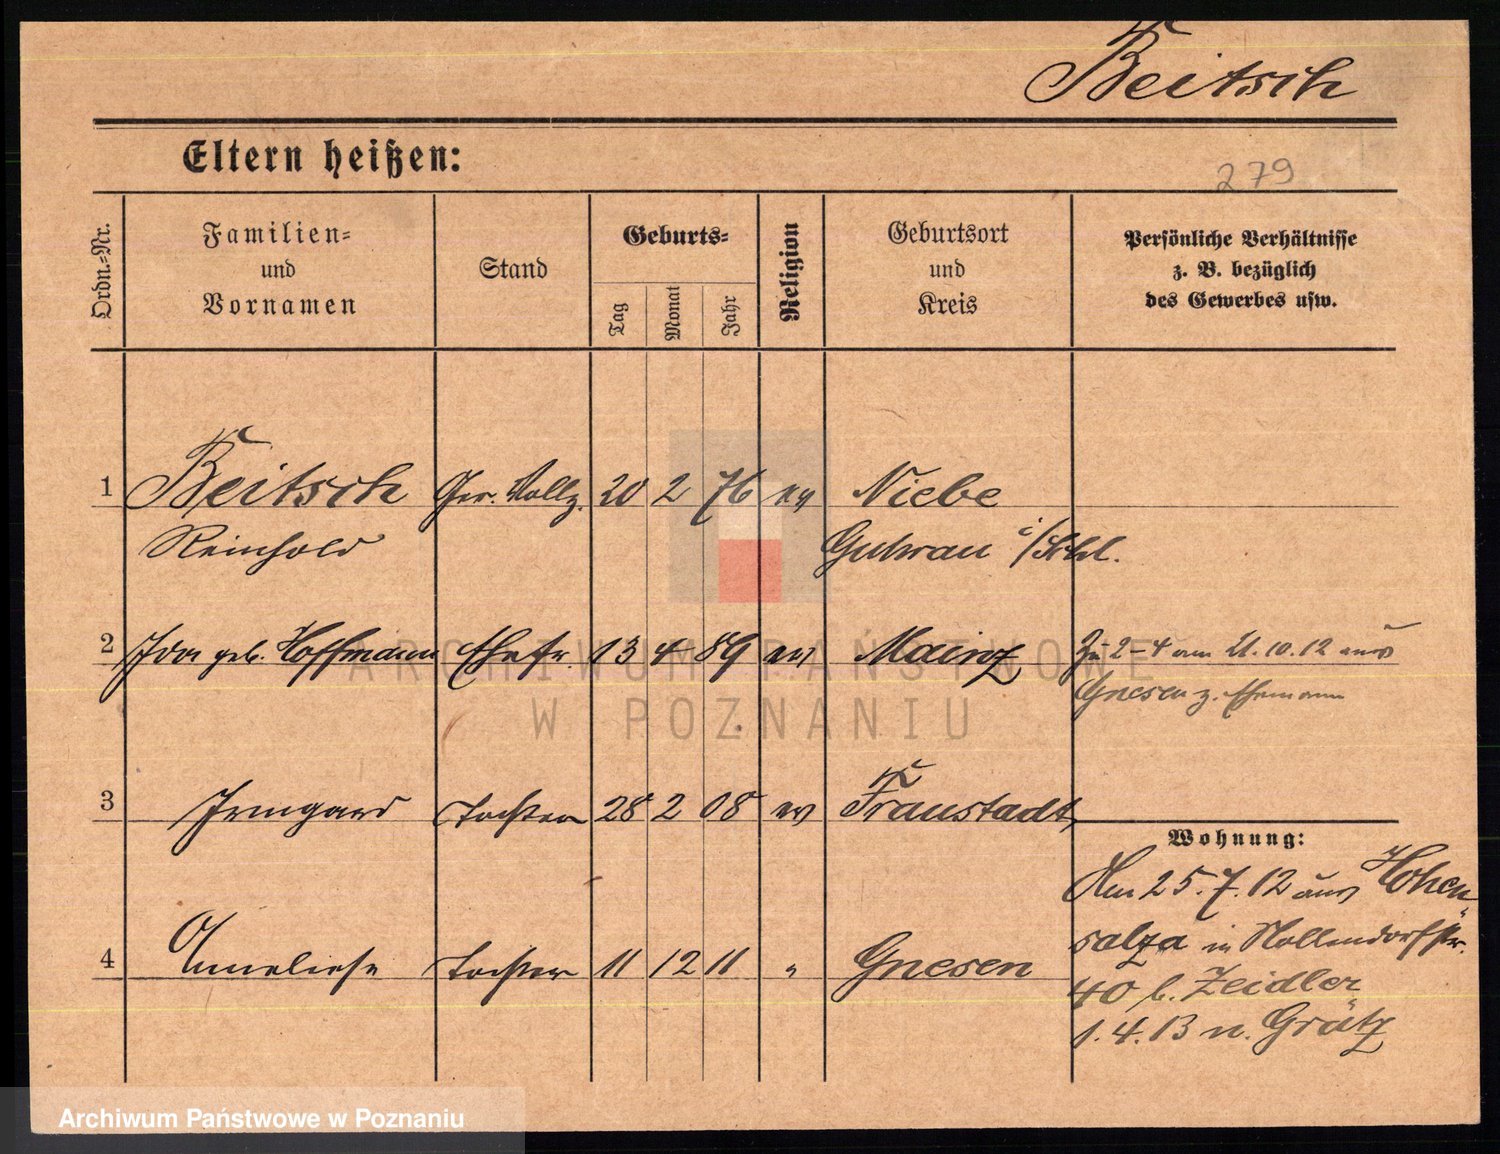 Beitsch
Eltern heißen:
279
Ordn.-Nr.
Familien-
und
Vornamen
Stand
Geburts-
Tag
Monat
Jahr
Religion
Geburtsort
und
Kreis
Persönliche Verhältnisse
z. B. bezüglich
des Gewerbes usw.
1 Beitsch Ger. Vollz. 20 2 76 ev Niebe
Reinhold Guhrau i/Schl.
2 Ida geb. Hoffmann Ehefr. 13 4 89 ev Mainz Zu 2-4 am 21.10.12 aus
Gnesen z. Ehemann
3 Irmgard Tochter 28 2 08 ev Fraustadt
Wohnung:
Am 25.7.12 aus Hohen-
salza in Nollendorfstr.
4 Anneliese Tochter 11 12 11 " Gnesen
40 b. Zeidler
1.4.13 n. Grätz
ARCHIWUM PAŃSTWOWE
W POZNANIU
Archiwum Państwowe w Poznaniu